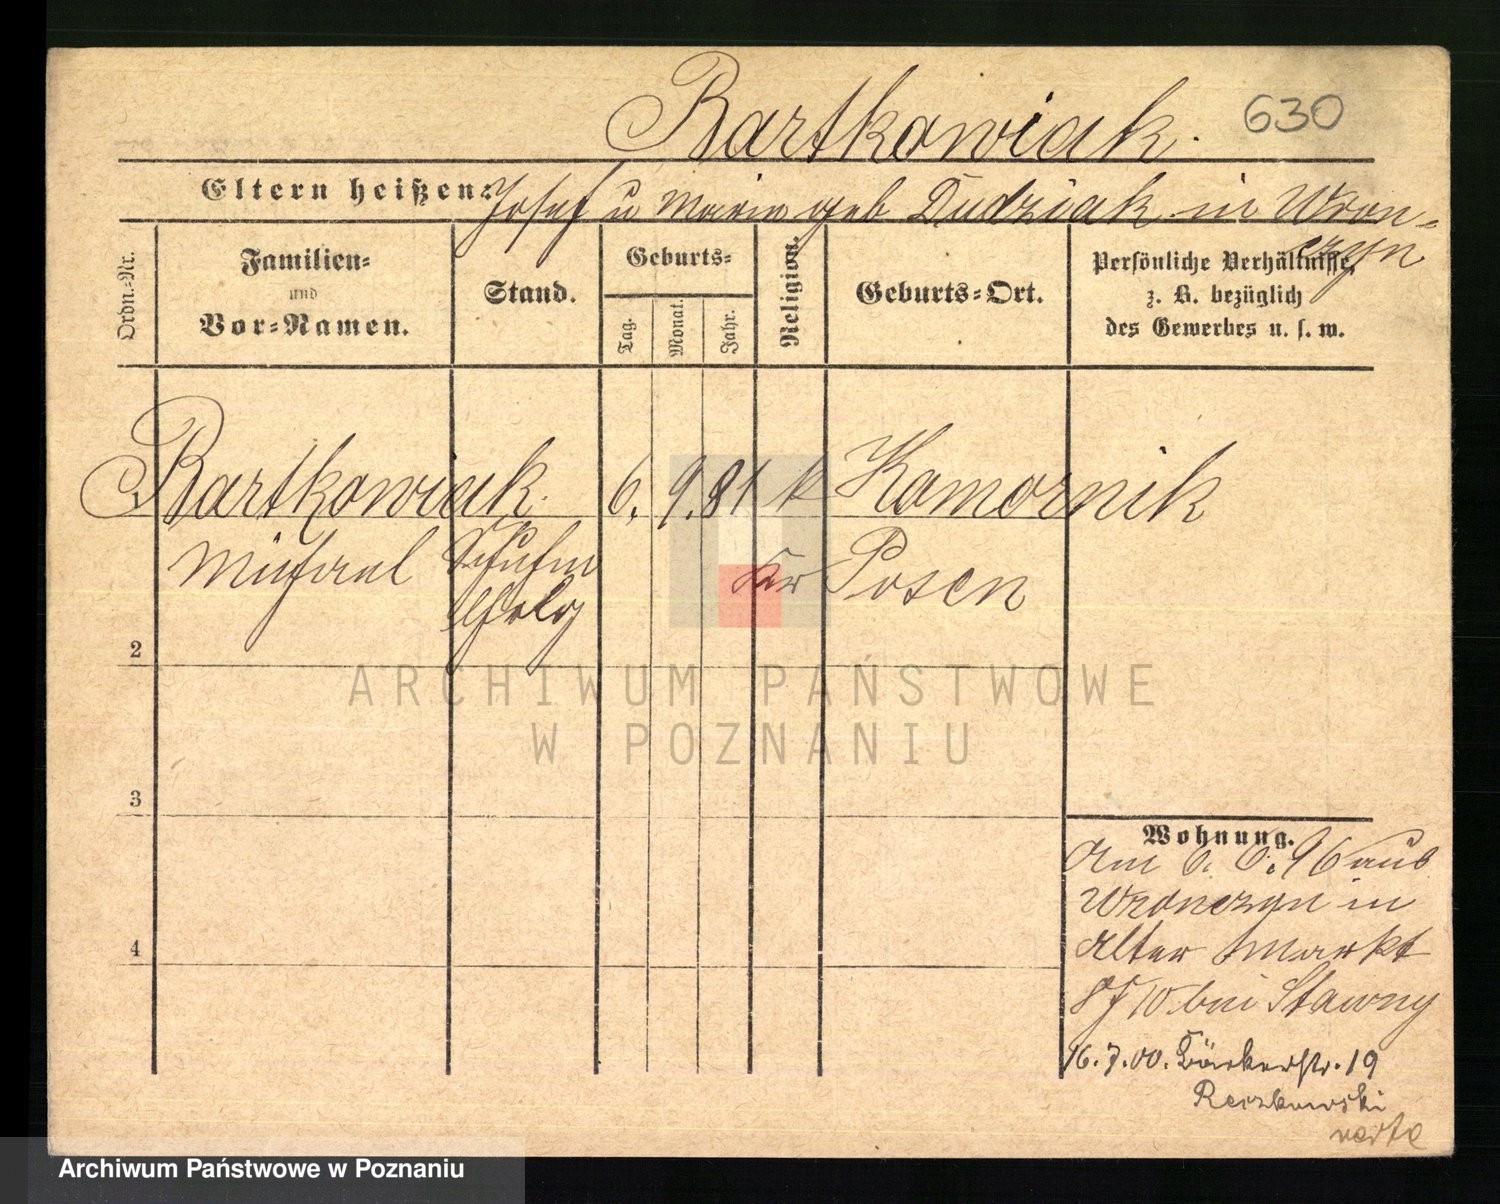 Bartkowiak. 630
Eltern heißen: Josef u Maria geb Dudziak in Wron=
czyn
Ordn.=Nr.
Familien=
und
Vor=Namen.
Stand.
Geburts=
Tag.
Monat.
Jahr.
Religion.
Geburts=Ort.
Persönliche Verhältnisse,
z. B. bezüglich
des Gewerbes u. s. w.
1 Bartkowiak. 6. 9. 81 k Komornik
Michael Kr Posen
2
3
4
Wohnung.
Am 6. 6. 96 aus
Wronczyn in
Alter Markt
bei Stawny
16. 7. 00. Bäckerstr. 19
Reszkowski
verte
ARCHIWUM PAŃSTWOWE
W POZNANIU
Archiwum Państwowe w Poznaniu